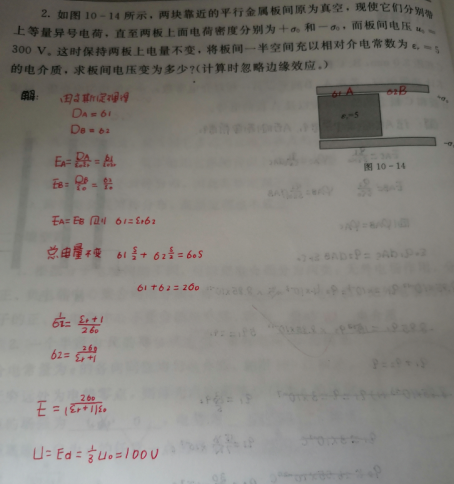 2. 如图 10-14 所示,两块靠近的平行金属板间原为真空,现使它们分别带
上等量异号电荷,直至两板上面电荷密度分别为+σ₀ 和-σ₀,而板间电压 u₀=
300 V。这时保持两板上电量不变,将板间一半空间充以相对介电常数为 εᵣ=5
的电介质,求板间电压变为多少?(计算时忽略边缘效应。)
解:
DA=б1
DB=б2
EA=DA/εrε0=б1/εrε0
EB=DB/ε0=б2/ε0
EA=EB 则 б1=εrб2
总电量不变 б1 S/2 + б2 S/2 = б0S
б1+б2=2б0
2б0
б2=2б0/εr+1
E=2б0/(εr+1)ε0
U=Ed=1/3 U0=100V
б1 A б2 B
εᵣ=5
图 10-14